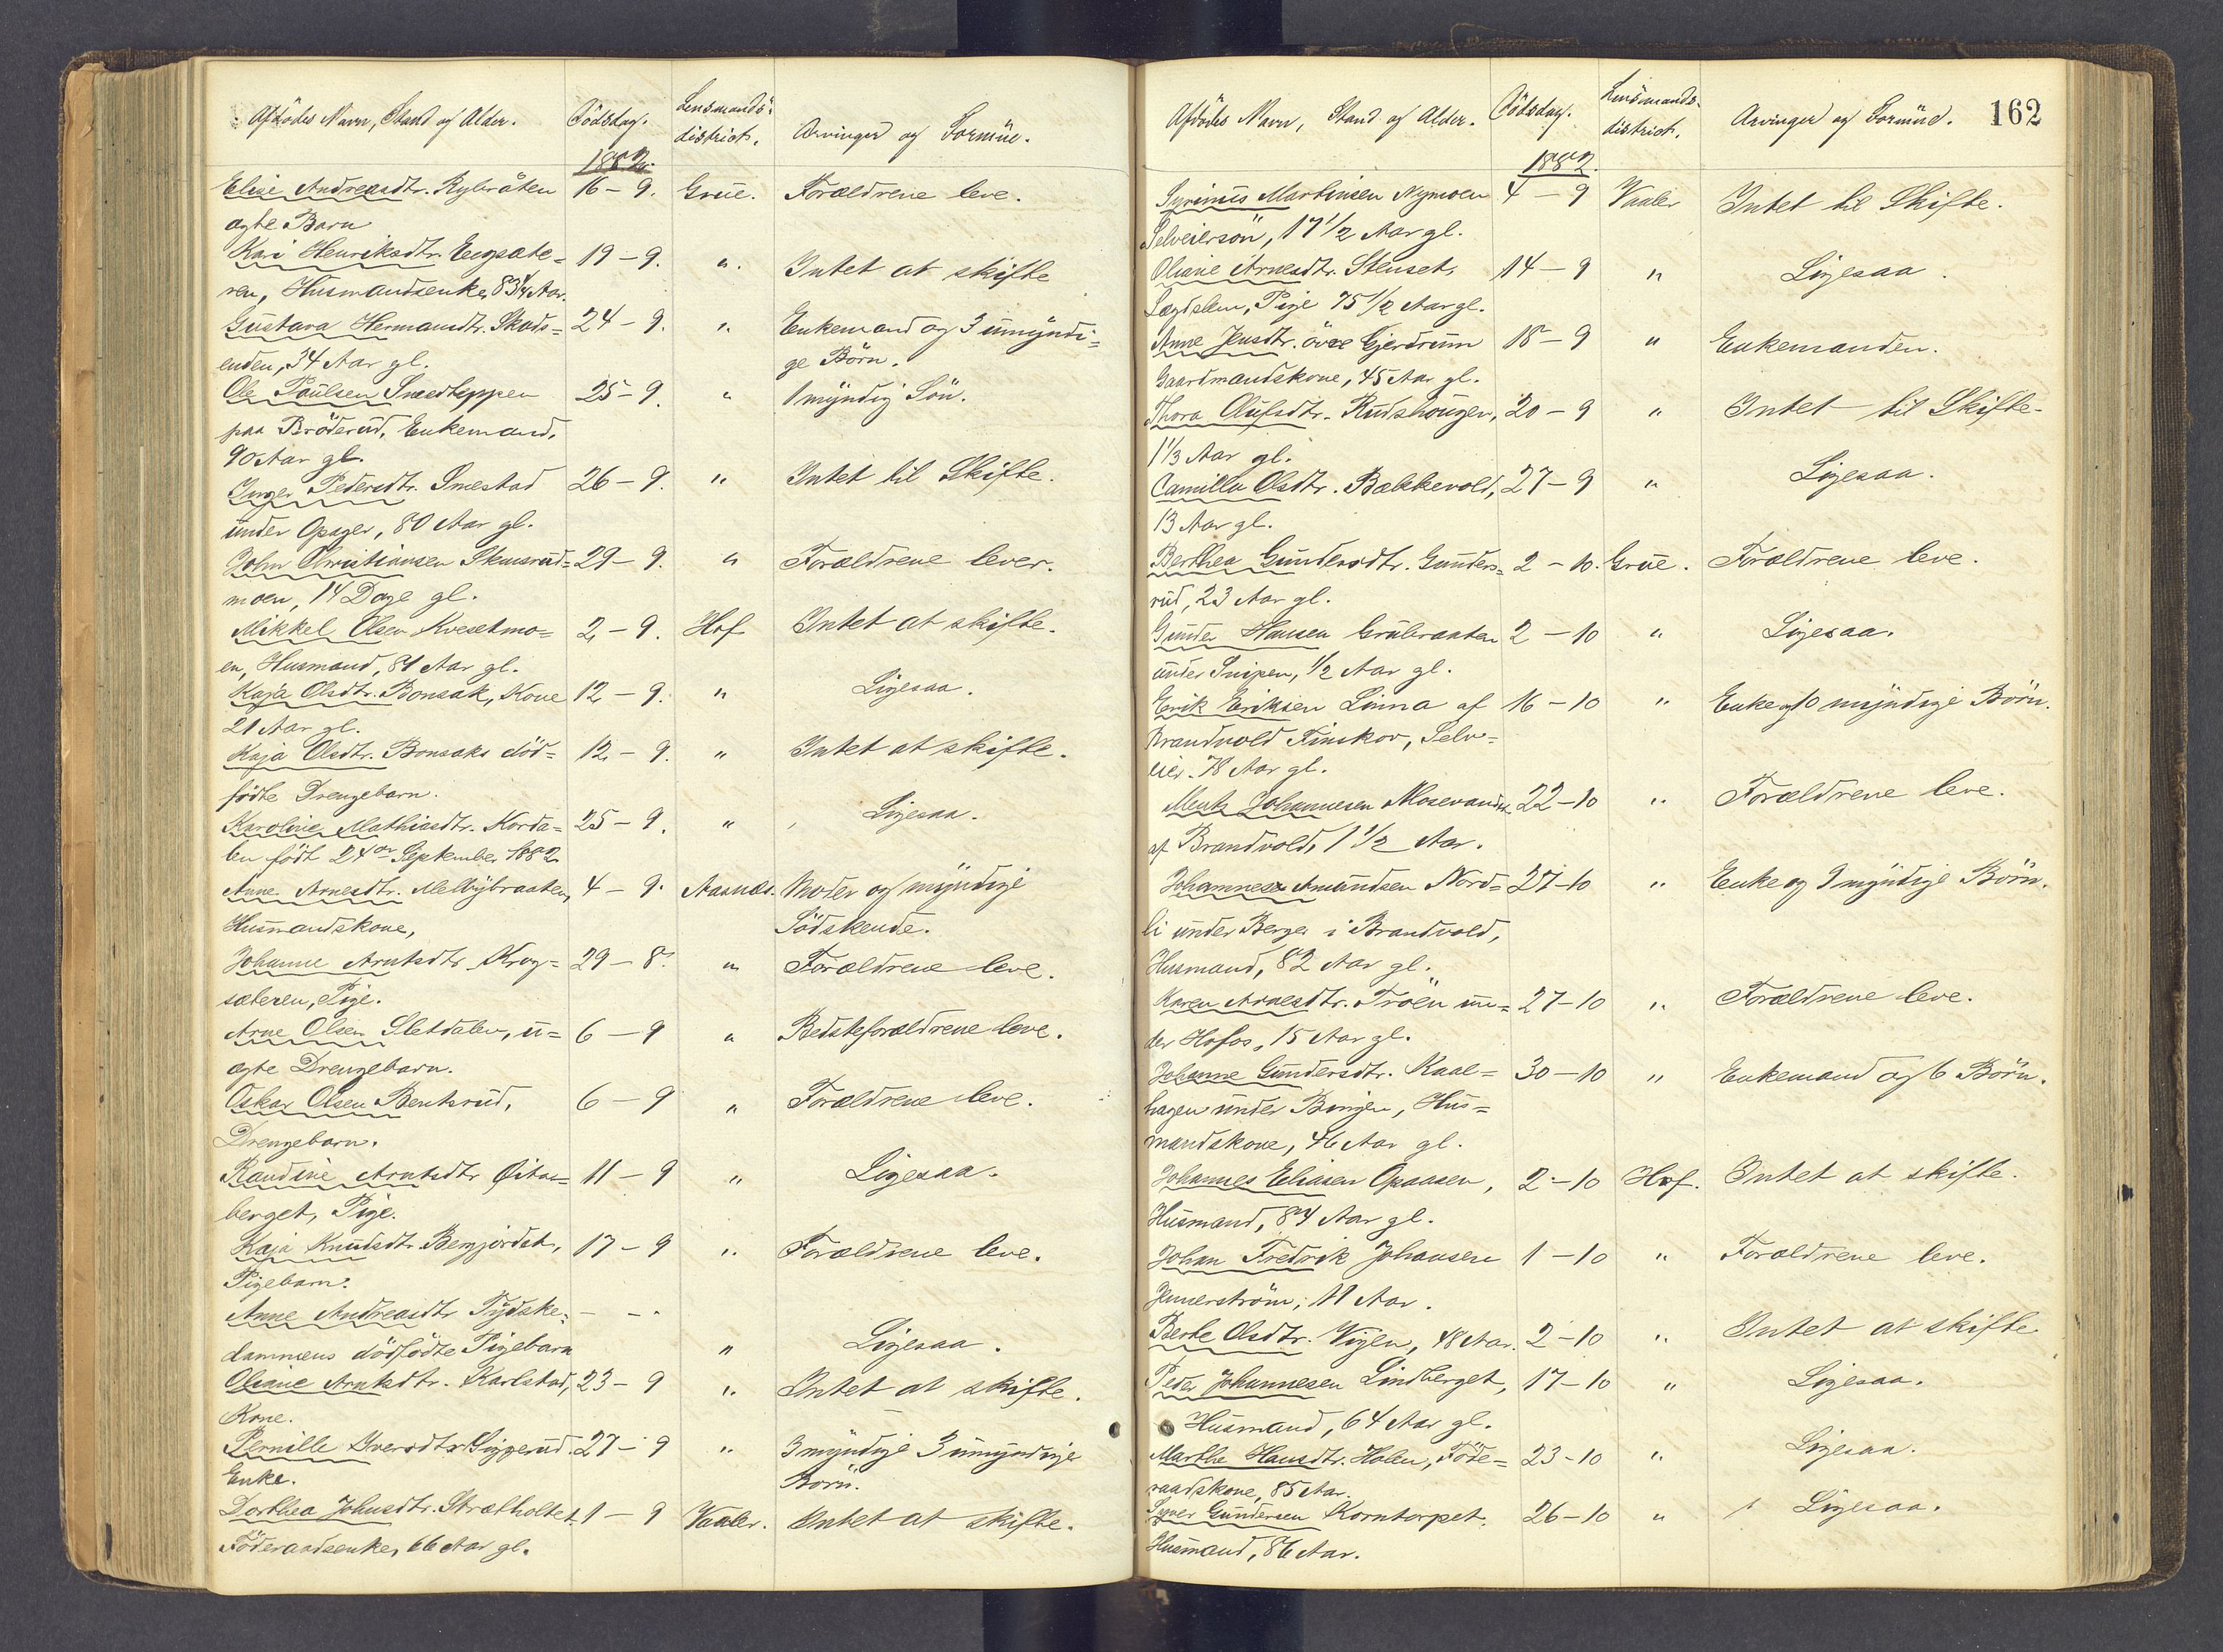 Afdødes Navn, Stand og Alder. Dödsdag. Lensmands- district. Arvinger og Formue.
1882.
Elise Andreasdtr. Rybråten 16-9. Grue. Forældrene leve.
ægte Barn
Kari Henriksdtr. Engsæte= 19-9. " Intet at skifte
ren, Husmandsenke, 83¼ Aar.
Gustava Hermansdtr. Skads= 24-9. " Enkemand og 3 umyndi=
enden, 34 Aar gl. ge Börn.
Ole Paulsen Snedteppen 25-9. " 1 myndig Sön.
paa Bröderud, Enkemand,
90 Aar gl.
Inger Pedersdtr. Smestad 26-9. " Intet til Skifte.
under Opager, 80 Aar gl.
John Christiansen Skensrud= 29-9. " Forældrene lever.
moen, 14 Dage gl.
Mikkel Olsen Kvesetmo= 2-9. Hof Intet at skifte.
en, Husmand, 81 Aar gl.
Kaja Olsdtr. Bonsak, Kone 12-9. " Ligesaa.
21 Aar gl.
Kaja Olsdtr. Bonsaks död= 12-9. " Intet at skifte.
födte Drengebarn.
Karoline Mathiasdtr. Korda= 25-9. " Ligesaa.
len födt 24de September 1882
Anne Arnesdtr. Melbybraaten, 4-9. Aasnæs. Moder og myndige
Husmandskone, Södskende.
Johanne Arntsdtr. Krog= 29-8. " Forældrene leve.
sæteren, Pige.
Arne Olsen Sletdalen, u= 6-9 " Bedsteforældrene leve.
ægte Drengebarn.
Oskar Olsen Bentsrud, 6-9 " Forældrene leve.
Drengebarn.
Randine Arntsdtr. 11-9 " Ligesaa.
berget, Pige.
Kaja Knudsdtr. Bergjordet, 17-9 " Forældrene leve.
Pigebarn.
Anne Andreasdtr. Tydske= - -
dammens dödfödte Pigebarn " Ligesaa.
Oliane Arntsdtr. Karlstad, 23-9 " Intet at skifte.
Kone.
Pernille Iversdtr. Sigperud. 27-9 " 3 myndige 3 umyndige
Enke. Börn.
Dorthea Johnsdtr. Strætholtet. 1-9 Vaaler. Intet at skifte.
Föderaadsenke, 66 Aar gl.
Afdødes Navn, Stand og Alder. Dödsdag. Lensmands- district. Arvinger og Formue. 162
1882.
Syrinus Martinsen Nymoen 4-9 Vaaler Intet til Skifte.
Selveiersön, 17½ Aar gl.
Oliane Arnesdtr. Stenset, 14-9 " Ligesaa.
Lægdslem, Pige 75½ Aar gl.
Anne Jensdtr. övre Gjerdrum 18-9 " Enkemanden.
Gaardmandskone, 45 Aar gl.
Thora Olufsdtr. Rudshougen, 20-9 " Intet til Skifte.
1⅓ Aar gl.
Camilla Olsdtr. Bækkevold, 27-9 " Ligesaa.
13 Aar gl.
Berthea Gundersdtr. Gunders= 2-10. Grue. Forældrene leve.
rud, 23 Aar gl.
Gunder Hansen Grubraaten 2-10 " Ligesaa.
under Snipen, ½ Aar gl.
Erik Eriksen Linna af 16-10 " Enke og 10 myndige Börn.
Brandvold Finskov, Selv=
eier. 78 Aar gl.
Mentz Johannesen Mosevandet 22-10 " Forældrene leve.
af Brandvold, 1½ Aar.
Johannes Amundsen Nord= 27-10 " Enke og 9 myndige Börn.
li under Berger i Brandvold,
Husmand, 82 Aar gl.
Karen Arnesdtr. Tröen un= 27-10 " Forældrene leve.
der Hofos, 15 Aar gl.
Johanne Gundersdtr. Kaal= 30-10 " Enkemand og 6 Börn.
hagen under Bingen, Hus=
mandskone, 46 Aar gl.
Johannes Eliasen Opaasen, 2-10 Hof. Intet at skifte.
Husmand, 84 Aar gl.
Johan Fredrik Johansen 1-10 " Forældrene leve.
Jennerström, 11 Aar.
Berte Olsdtr. Vigen, 48 Aar. 2-10 " Intet at skifte
Peder Johannesen Lindberget, 17-10 " Ligesaa.
Husmand, 64 Aar gl.
Marthe Hansdtr. Holen, Föde= 23-10 " Ligesaa.
raadskone, 85 Aar.
Syver Gundersen Korntorpet, 26-10 " Ligesaa.
Husmand, 86 Aar.